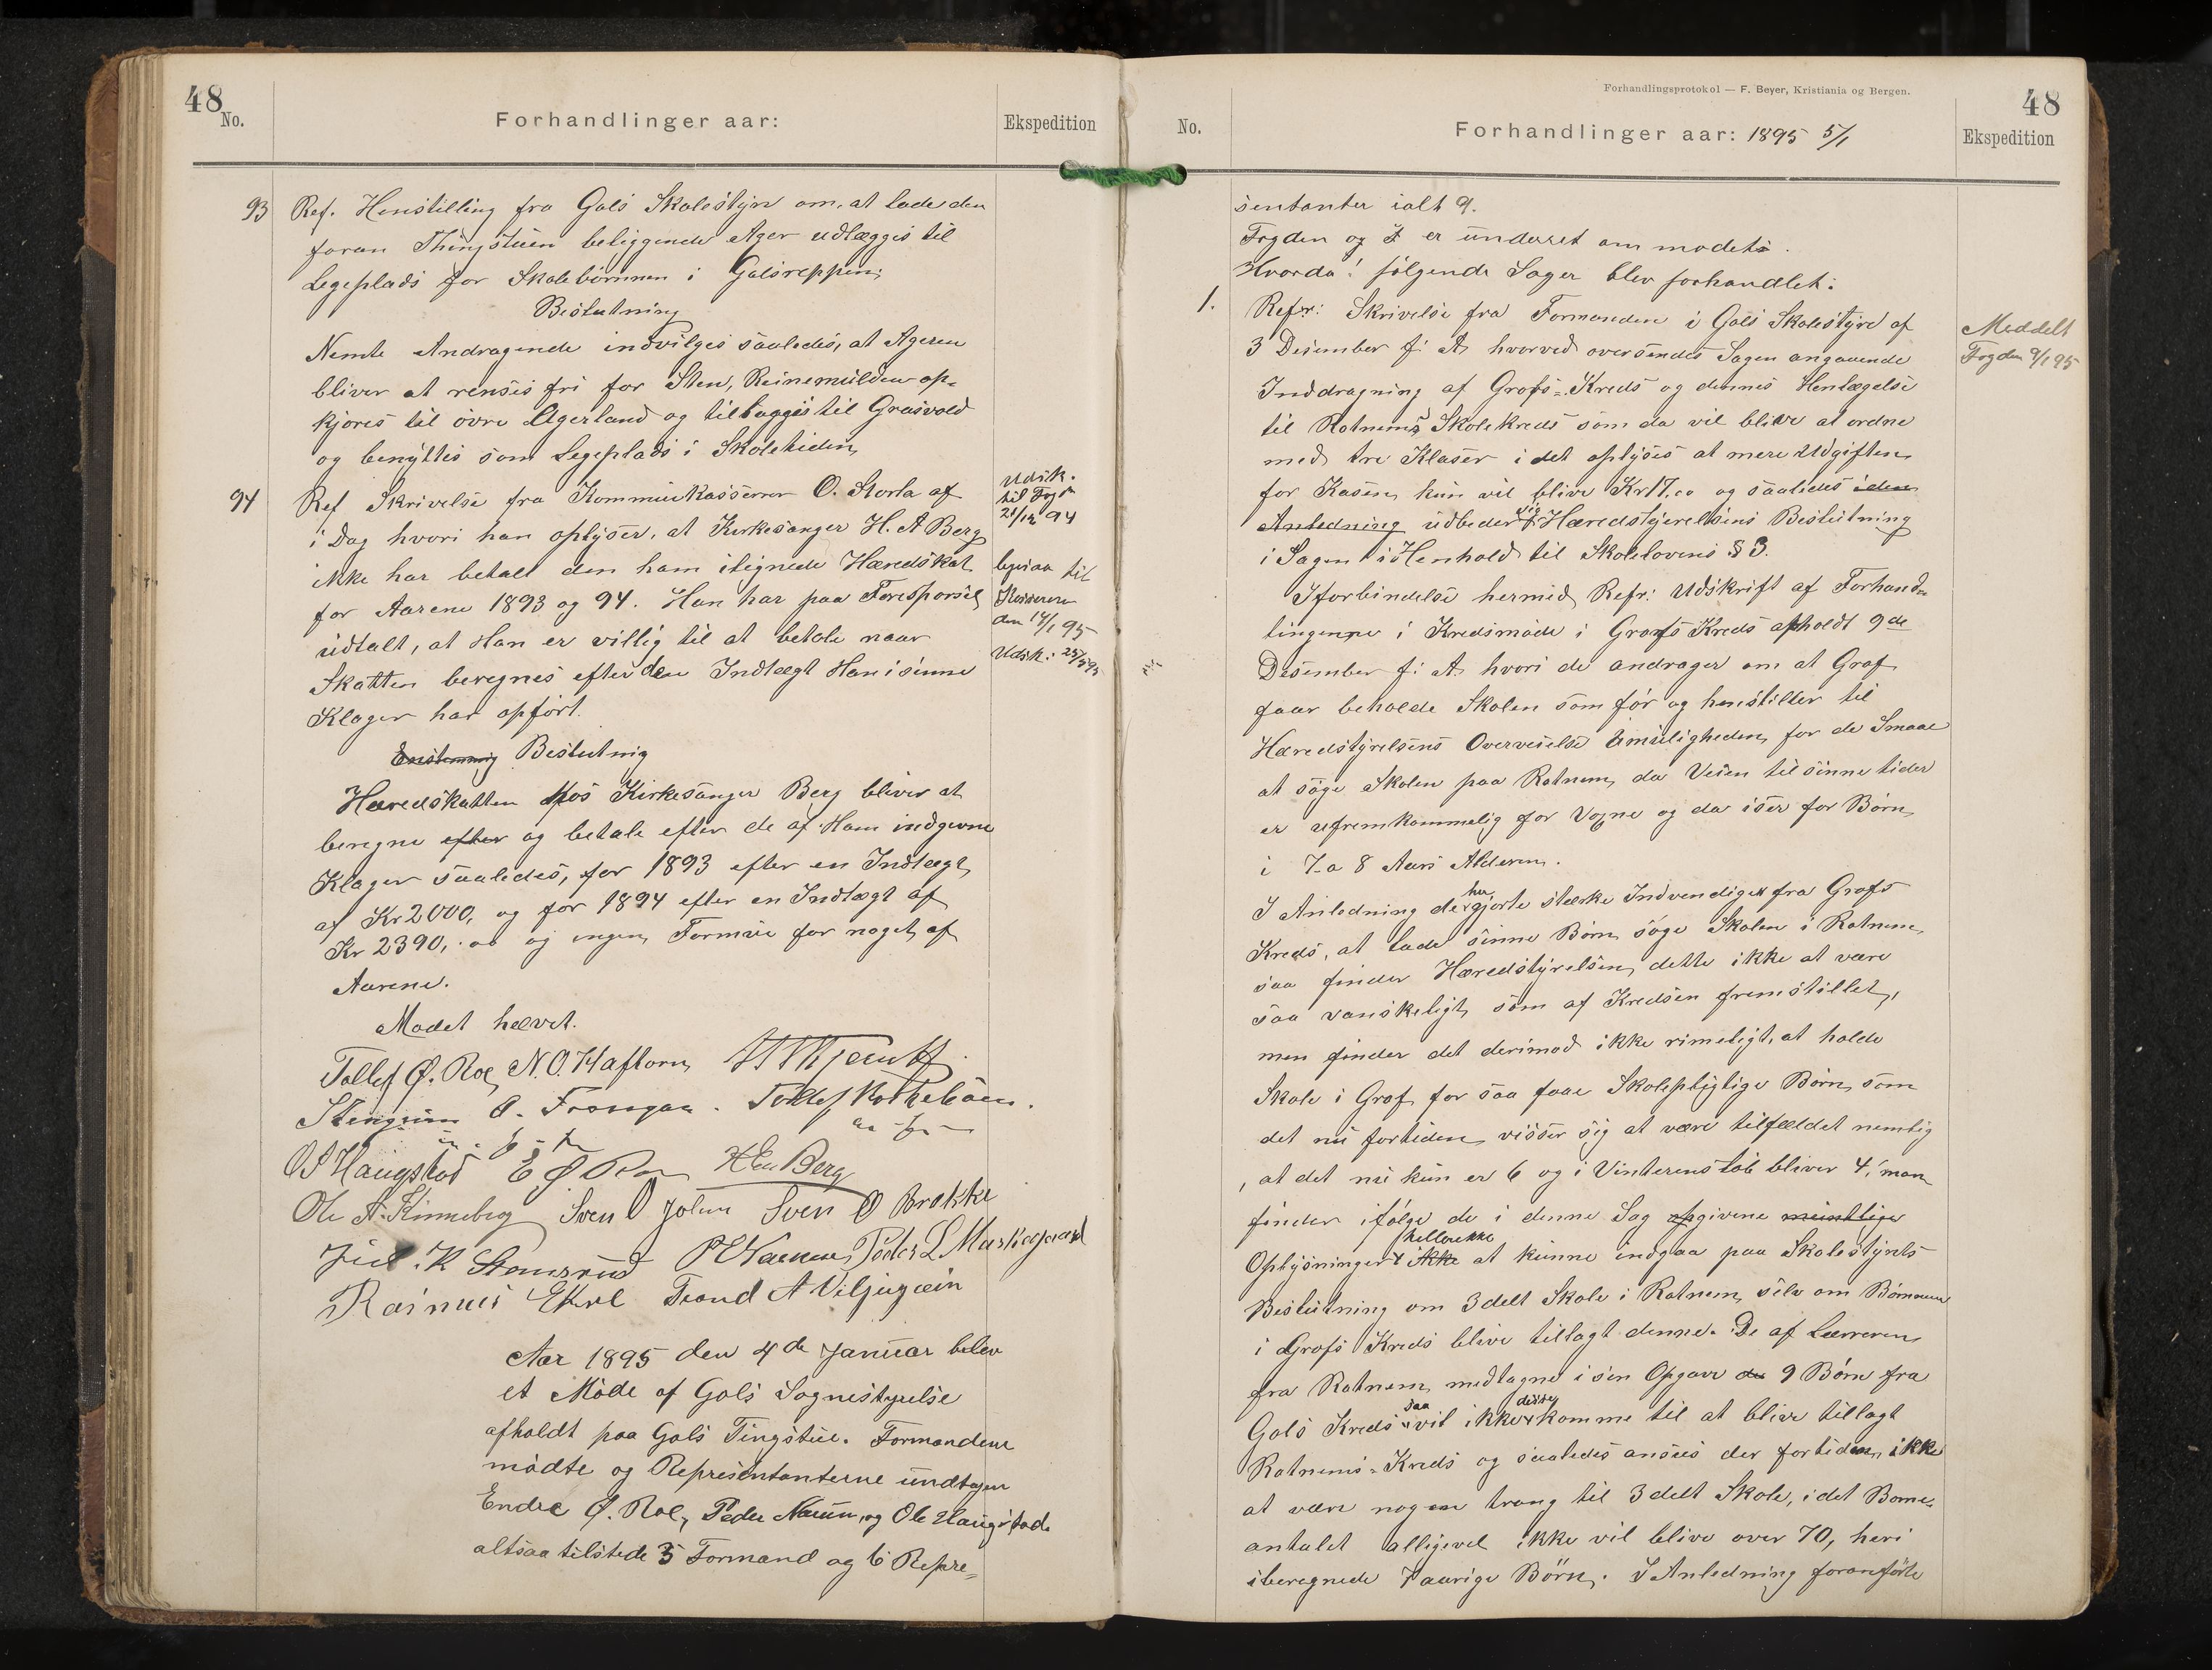 48
No.
Forhandlinger aar:
Ekspedition
93 Ref. Henstilling fra Gols Skolestyre om, at lade den
foran Thingstuen beliggende Ager udlægges til
Legeplads for Skolebørnene i Golsreppen;
Beslutning
Nemte Andragende indvilges saaledes, at Ageren
bliver at renses fri for Sten, Reinemulden op-
kjøres til øvre Agerland og tillægges til Græsvold
og benyttes som Legeplads i Skoletiden,
94 Ref Skrivelse fra Kommunekasserer O. Storla af
i Dag hvori han oplyser, at Kirkesanger H. A Berg
ikke har betalt den ham ilignede Hæredskat
for Aarene 1893 og 94. Han har paa Foresporsel
udtalt, at Han er villig til at betale naar
Skatten beregnes efter den Indtægt Han i sinne
Klager har opført.
Enstemmig Beslutnig
Hæredskatten hos Kirkesanger Berg bliver at
beregne efter og betale efter de af Ham indgivne
Klager saaledes, for 1893 efter en Indtægt
af Kr 2000, og for 1894 efter en Indtægt af
Kr 2390, oo og ingen Formue for noget af
Aarene.
Udsk.
til Fogden
21/12 94
til
Kasseren
den 14/1 95
Udsk:
Mødet hævet.
Tollef Ø. Roe, N. O. Haftorn,
Stengrim O. Frøngaa.
O S Haugstad E Ø Roe H A Berg
Ole A. Kinneberg Sven O Jolun Sven O Brokke
K Stensrud P Narum, Peder L Markegaard
Rasmus Ekre Trond A Viljugrein
Aar 1895 den 4de Januar belev
et Møde af Gols Sognestyrelse
afholdt paa Gols Tingstue. Formandene
mødte og Representanterne undtagen
Endre Ø. Roe, Peder Narum, og Ole Haugstad
altsaa tilstede 3 Formand og 6 Repre-
Forhandlingsprotokol — F. Beyer, Kristiania og Bergen.
48
No.
Forhandlinger aar: 1895 5/1
Ekspedition
sentanter ialt 9.
Fogden og L er underret om modets.
Hvorda! følgende Sager blev forhandlet:
1. Refr: Skrivelse fra Formanden i Gols Skolestyre af
3 Desember f: A, hvorved oversendes Sagen angaaende
Inddragning af Grøfs-Kreds og dennes Henlægelse
til Rotnems Skolekreds som da vil blive at ordne
med tre Klaser i det oplyses at mere Udgiften
for Kasen, kun vil blive Kr 17,00 og saaledes iden
Anledning udbeder sig Hæredstyrelsens Beslutning
i Sagen i Henhold til Skolelovens § 3.
Iforbindelse hermed, Refr: Udskrift af Forhand-
lingerne i Kredsmøde i Grøfs Kreds afholdt 9de
Desember f: A, hvori de andrager om at Grøf
faar beholde Skolen som før og henstiller til
Hæredstyrelsens Overveielse Umuligheden, for de Smaae
at søge Skolen paa Rotnem, da Veien til sinne tider
er ufremkommelig for Vogne og da iser for Børn,
i 7 a 8 Aars Alderen.
I Anledning de her gjorte stærke Indvendiger fra Grøfs
Kreds, at lade sinne Børn søge Skolen i Rotnem,
saa finder Hæredstyrelsen, dette ikke at være
saa vanskeligt, som af Kredsen fremstillet,
men finder det derimod ikke rimeligt, at holde
Skole i Grøf for saa faae Skolepligtige Børn, som
det nu fortiden, visser sig at være tilfældet nemlig
, at det nu kun er 6 og i Vinterens løb bliver 4, man
finder ifølge de i denne Sag opgivene muntlige
Oplysninger ikke hellerikke at kunne indgaa paa Skolestyrets
Beslutning om 3 delt Skole i Rotnem, selv om Børnene
i Grøfs Kreds blive tillagt denne. De af Læreren
fra Rotnem, medtagne i sin Opgave de 9 Børn fra
Gols Kreds saa vil ikke disse komme til at blive tillagt
Rotnems-Kreds og saaledes ansees der fortiden, ikke
at være nogen trang til 3 delt Skole, i det Børne-
antalet alligevel ikke vil blive over 70, heri
iberegnede 7 aarige Børn. I Anledning foranførte
Meddelt
Fogden 9/1 95